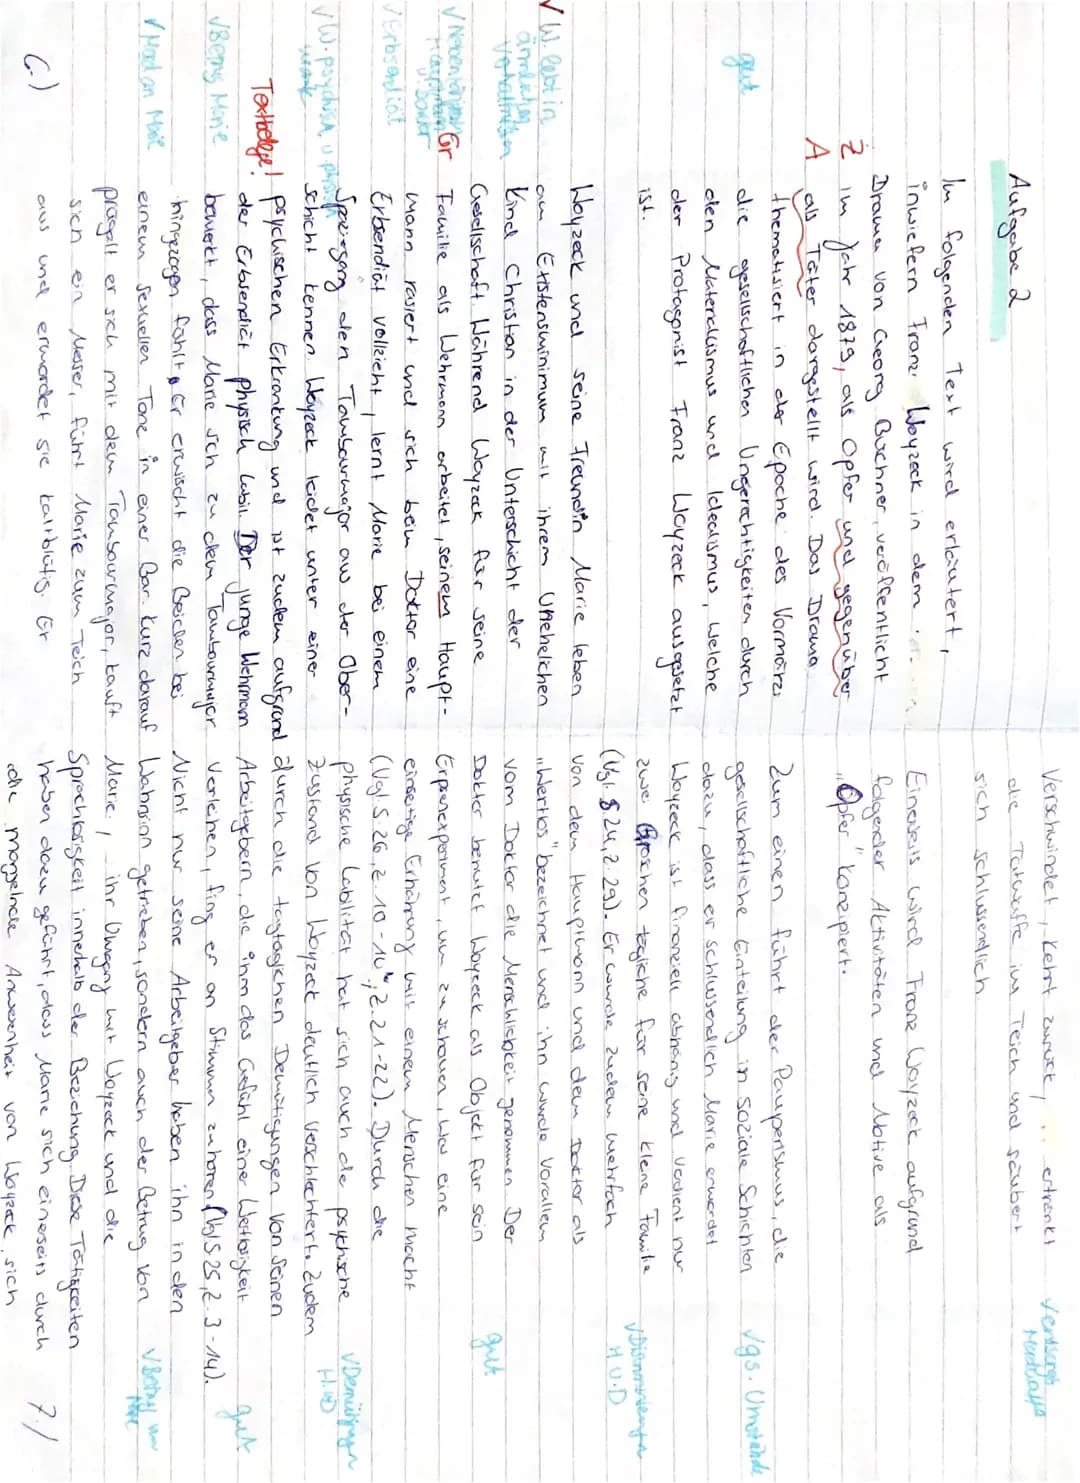 Aufgabe 2
Im folgenden Text wird erläutert,
inwiefern Franz Woyzeck in dem
Drama von Georg Büchner, veröffentlicht
Z im Jahr 1879, als Opfer und gegenüber
A als Täter dargestellt wird. Das Drama
thematisiert in der Epoche des Vormärz
gut die gesellschaftlichen Ungerechtigkeiten durch
den Materialismus und Idealismus, welche
der Protagonist Franz Woyzeck ausgesetzt
ist.
Woyzeck und seine Freundin Marie leben
√ W. lebt in am Existenzminimum mit ihrem Unehelichen
ärmlichen Kind Christian in der Unterschicht der
Verhältnissen Gesellschaft. Während Woyzeck für seine
Gr Familie als Wehrmann arbeitet, seinem Haupt-
√ Nebentätigkeit Hauptmann u. Doktor mann rasiert und sich beim Doktor eine
√ Erbsendiät Erbsendiät vollzieht, lernt Marie bei einem
Spaziergang den Tambourmajor aus der Ober-
√ W. psychisch u physisch krank schicht kennen. Woyzeck leidet unter einer
psychischen Erkrankung und ist zudem aufgrund
Textbelege! der Erbsendiät physisch labil. Der junge Wehrmann
√ Betrug Marie bemerkt, dass Marie sich zu dem Tambourmajor
hingezogen fühlt. Er erwischt die Beiden bei
√ Mord an Marie einem sexuellen Tanz in einer Bar. Kurz darauf
prügelt er sich mit dem Tambourmajor, kauft
sich ein Messer, führt Marie zum Teich
aus und ermordet sie kaltblütig. Er
6.)
verschwindet, kehrt zurück, ertränkt
die Tatwaffe im Teich und säubert
sich schlussendlich.
√ entsorgt Mordwaffe
Einerseits wird Franz Woyzeck aufgrund
folgender Aktivitäten und Motive als
"Opfer" konzipiert.
Zum einen führt der Pauperismus, die
gesellschaftliche Einteilung in soziale Schichten √ gs. Umstände
dazu, dass er schlussendlich Marie ermordet
Woyzeck ist finanziell abhäng und verdient nur
zwei Groschen tägliche für seine kleine Familie
(Vgl. S 24, Z. 29). Er wurde zudem mehrfach √ H u. D
von dem Hauptmann und dem Doktor als
"Wertlos" bezeichnet und ihn wurde Vorallem
vom Doktor die Menschlichkeit genommen. Der
Doktor benutzt Woyzeck als Objekt für sein gut
Erbsenexperiment, um zu schauen, was eine
einseitige Ernährung mit einem Menschen macht
(Vgl S. 26, Z. 10-16, Z. 21-22). Durch die
physische Labilität hat sich auch die psychische √ Demütigungen
Zustand von Woyzeck deutlich verschlechtert. Zudem
durch die tagtäglichen Demütigungen von Seinen
Arbeitgebern, die ihm das Gefühl eine Wertlosigkeit
verleihen, fing er an Stimmen zu hören (Vgl S 25, Z. 3-14). gut
Nicht nur seine Arbeitgeber haben ihn in den
Wahnsinn getrieben, sondern auch der Betrug von √ Betrug von
Marie, ihr Umgang mit Woyzeck und die
Sprachlosigkeit innerhalb der Beziehung. Diese Tätigkeiten
haben dazu geführt, dass Marie sich einerseits durch
die mangelnde Anwesenheit von Woyzeck, sich
7.)